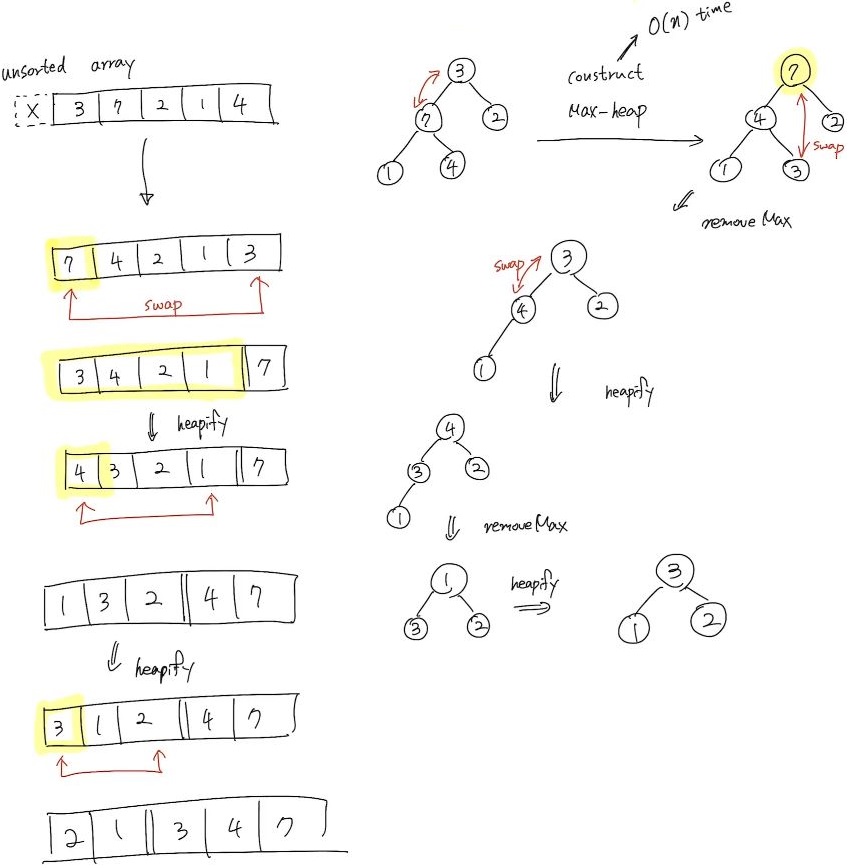 unsorted array
X 3 7 2 1 4
7 4 2 1 3
swap
3 4 2 1 7
heapify
4 3 2 1 7
1 3 2 4 7
heapify
3 1 2 4 7
2 1 3 4 7
O(n) time
construct
Max-heap
3
7 2
1 4
7
4 2
1 3
swap
removeMax
3
swap
4 2
1
heapify
4
3 2
1
removeMax
1
3 2
heapify
3
1 2